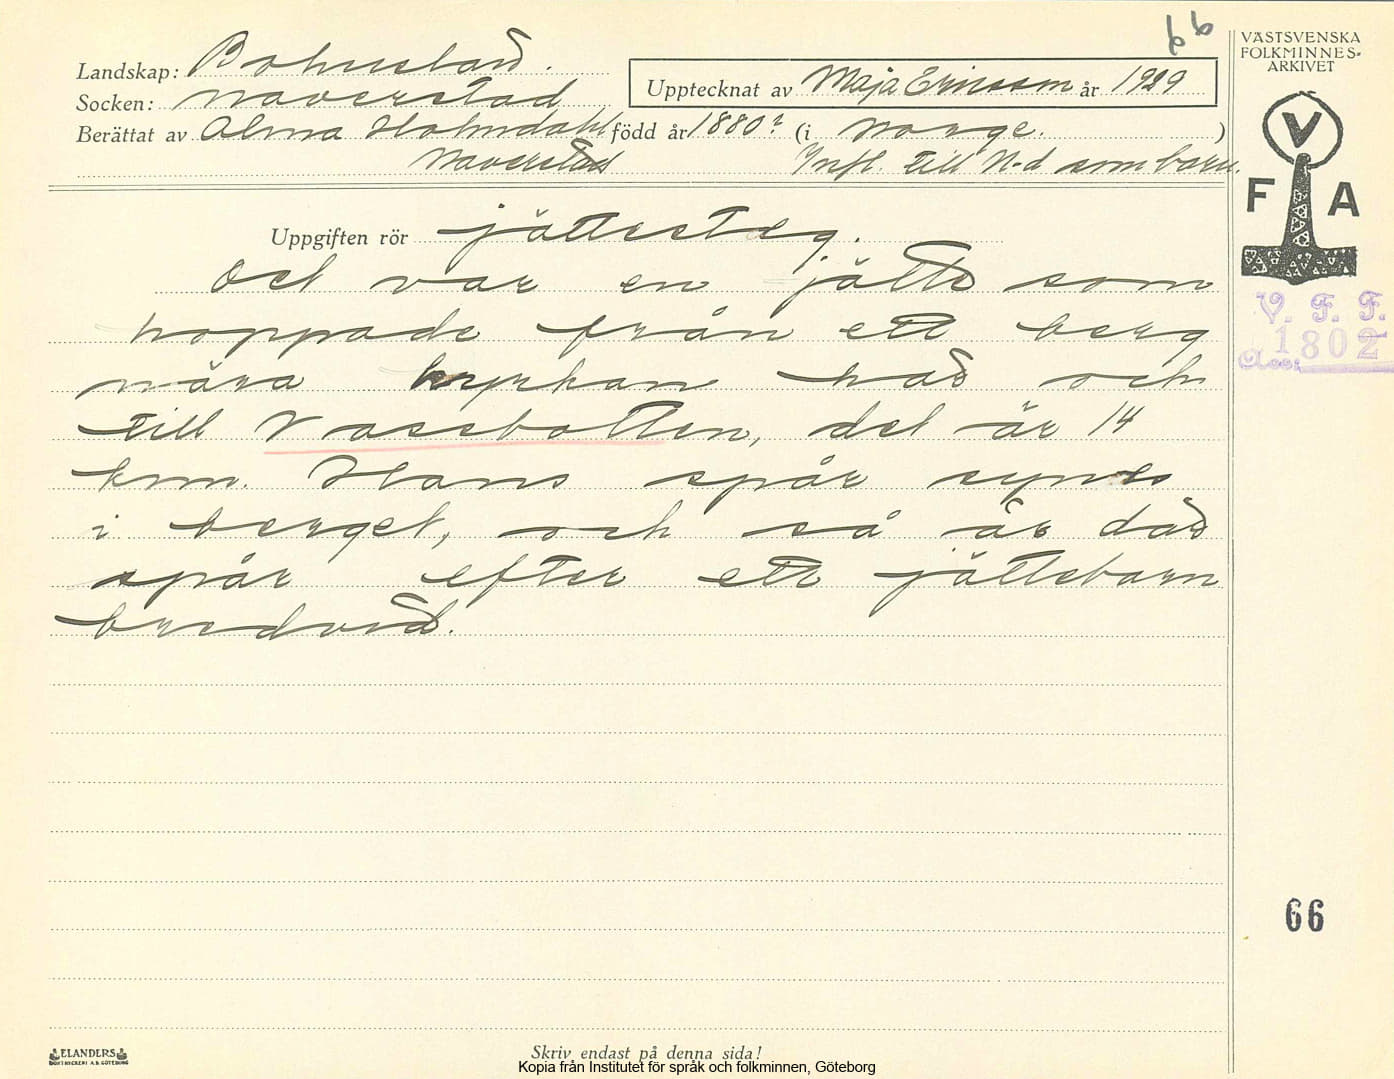 66
VÄSTSVENSKA
FOLKMINNES-
ARKIVET
Landskap: Bohuslän.
Socken: Naverstad
Upptecknat av Maja Ericsson år 1929
Berättat av Alma Holmdahl född år 1880? (i Norge. )
Naverstad Infl. till N-d som barn.
V
F A
Uppgiften rör jättesteg.
Det var en jätte som
hoppade från ett berg
nära kyrkan här och
till Vassbotten, det är 14
km. Hans spår synes
i berget, och så är där
spår efter ett jättebarn
bredvid.
V. F. F.
1802
Acc:
66
ELANDERS
BOKTRYCKERI A.B. GÖTEBORG
Skriv endast på denna sida!
Kopia från Institutet för språk och folkminnen, Göteborg